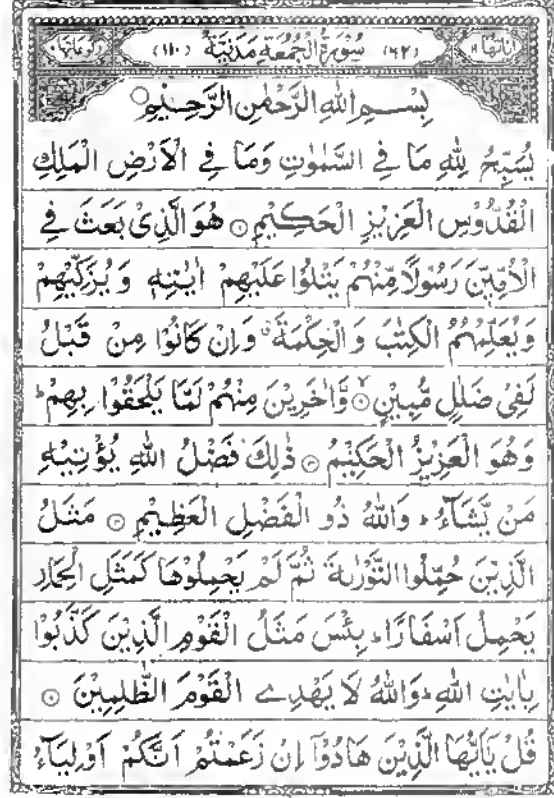 اٰیَاتُهَا ۱۱ (۶۲) سُوْرَةُ الْجُمُعَةِ مَدَنِیَّةٌ (۱۱۰) رُکُوْعَاتُهَا ۲
بِسْمِ اللهِ الرَّحْمٰنِ الرَّحِیْمِ
یُسَبِّحُ لِلّٰهِ مَا فِی السَّمٰوٰتِ وَمَا فِی الْاَرْضِ الْمَلِكِ
الْقُدُّوْسِ الْعَزِیْزِ الْحَکِیْمِ ۝۱ هُوَ الَّذِیْ بَعَثَ فِی
الْاُمِّیّٖنَ رَسُوْلًا مِّنْهُمْ یَتْلُوْا عَلَیْهِمْ اٰیٰتِهٖ وَ یُزَکِّیْهِمْ
وَیُعَلِّمُهُمُ الْکِتٰبَ وَ الْحِکْمَةَ ۗ وَاِنْ کَانُوْا مِنْ قَبْلُ
لَفِیْ ضَلٰلٍ مُّبِیْنٍ ۝۲ وَّاٰخَرِیْنَ مِنْهُمْ لَمَّا یَلْحَقُوْا بِهِمْ ؕ
وَهُوَ الْعَزِیْزُ الْحَکِیْمُ ۝۳ ذٰلِكَ فَضْلُ اللهِ یُؤْتِیْهِ
مَنْ یَّشَآءُ ؕ وَاللهُ ذُو الْفَضْلِ الْعَظِیْمِ ۝۴ مَثَلُ
الَّذِیْنَ حُمِّلُوا التَّوْرٰىةَ ثُمَّ لَمْ یَحْمِلُوْهَا کَمَثَلِ الْحِمَارِ
یَحْمِلُ اَسْفَارًا ؕ بِئْسَ مَثَلُ الْقَوْمِ الَّذِیْنَ کَذَّبُوْا
بِاٰیٰتِ اللهِ ؕ وَاللهُ لَا یَهْدِی الْقَوْمَ الظّٰلِمِیْنَ ۝۵
قُلْ یٰۤاَیُّهَا الَّذِیْنَ هَادُوْۤا اِنْ زَعَمْتُمْ اَنَّکُمْ اَوْلِیَآءُ